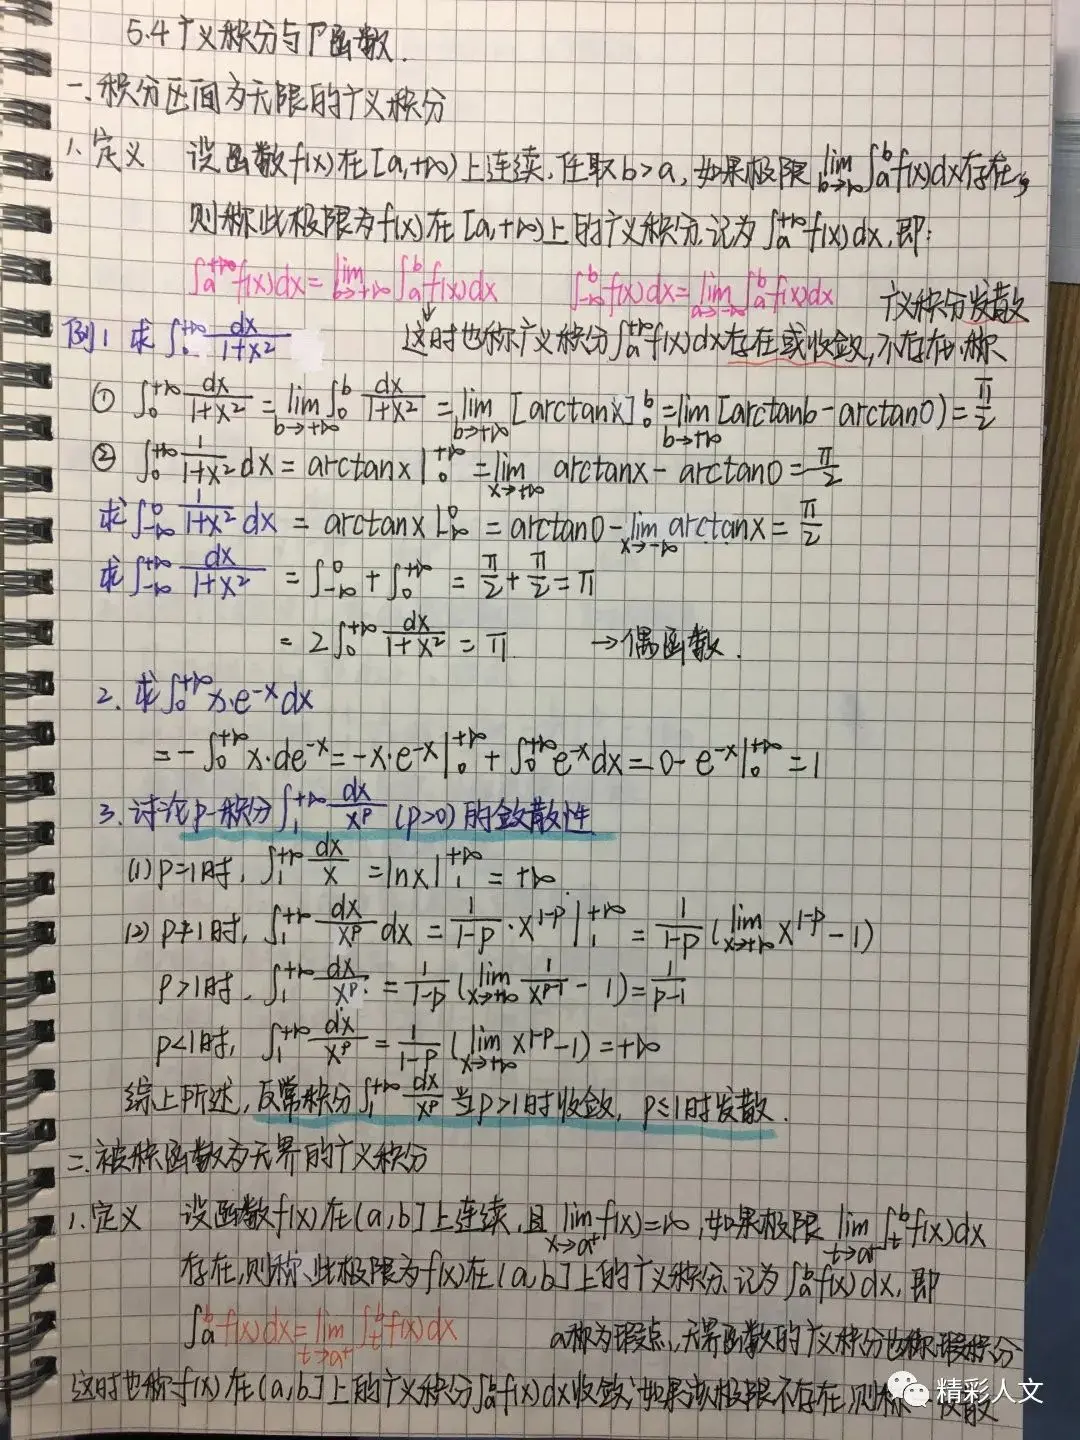 5.4 广义积分与Γ函数.
一.积分区间为无限的广义积分
1.定义 设函数f(x)在[a,+∞)上连续,任取b>a,如果极限lim_{b→+∞}∫_a^b f(x)dx存在,
则称此极限为f(x)在[a,+∞)上的广义积分,记为∫_a^{+∞}f(x)dx,即:
∫_a^{+∞}f(x)dx=lim_{b→+∞}∫_a^b f(x)dx ∫_{-∞}^b f(x)dx=lim_{a→-∞}∫_a^b f(x)dx 广义积分发散
例1 求∫_0^{+∞} dx/(1+x²) 这时也称广义积分∫_a^{+∞}f(x)dx存在或收敛,不存在,称
① ∫_0^{+∞} dx/(1+x²) = lim_{b→+∞}∫_0^b dx/(1+x²) = lim_{b→+∞}[arctanx]_0^b = lim_{b→+∞}[arctanb-arctan0)=π/2
② ∫_0^{+∞} 1/(1+x²) dx = arctanx|_0^{+∞} = lim_{x→+∞} arctanx - arctan0 = π/2
求∫_{-∞}^0 1/(1+x²) dx = arctanx|_{-∞}^0 = arctan0 - lim_{x→-∞} arctanx = π/2
求∫_{-∞}^{+∞} dx/(1+x²) = ∫_{-∞}^0 + ∫_0^{+∞} = π/2 + π/2 = π
= 2∫_0^{+∞} dx/(1+x²) = π →偶函数.
2. 求∫_0^{+∞} x·e^{-x}dx
= -∫_0^{+∞} x·de^{-x} = -x·e^{-x}|_0^{+∞} + ∫_0^{+∞} e^{-x}dx = 0 - e^{-x}|_0^{+∞} = 1
3. 讨论p-积分∫_1^{+∞} dx/x^p (p>0)的敛散性
(1) p=1时, ∫_1^{+∞} dx/x = lnx|_1^{+∞} = +∞.
(2) p≠1时, ∫_1^{+∞} dx/x^p dx = 1/(1-p)·x^{1-p}|_1^{+∞} = 1/(1-p) (lim_{x→+∞} x^{1-p} - 1)
p>1时, ∫_1^{+∞} dx/x^p = 1/(1-p) (lim_{x→+∞} 1/x^{p-1} - 1) = 1/(p-1)
p<1时, ∫_1^{+∞} dx/x^p = 1/(1-p) (lim_{x→+∞} x^{1-p} - 1) = +∞
综上所述,反常积分∫_1^{+∞} dx/x^p 当p>1时收敛, p≤1时发散.
二.被积函数为无界的广义积分
1.定义 设函数f(x)在(a,b]上连续,且lim_{x→a⁺}f(x)=∞,如果极限lim_{t→a⁺}∫_t^b f(x)dx
存在,则称此极限为f(x)在(a,b]上的广义积分,记为∫_a^b f(x)dx,即
∫_a^b f(x)dx=lim_{t→a⁺}∫_t^b f(x)dx a称为瑕点,无界函数的广义积分也称瑕积分
这时也称f(x)在(a,b]上的广义积分∫_a^b f(x)dx收敛;如果该极限不存在,则称 发散
精彩人文